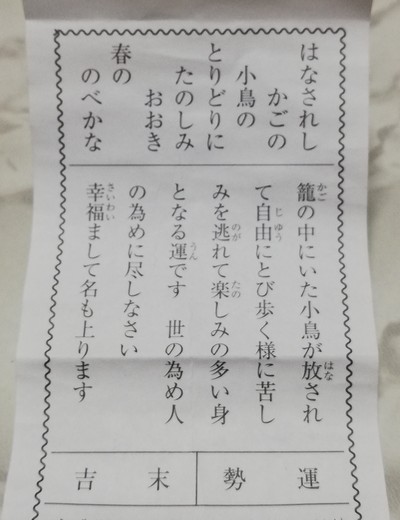 はなされし
かごの
小鳥の
とりどりに
たのしみ
おおき
春の
のべかな
籠の中にいた小鳥が放され
て自由にとび歩く様に苦し
みを逃れて楽しみの多い身
となる運です 世の為め人
の為めに尽しなさい
幸福まして名も上ります
運勢
末吉